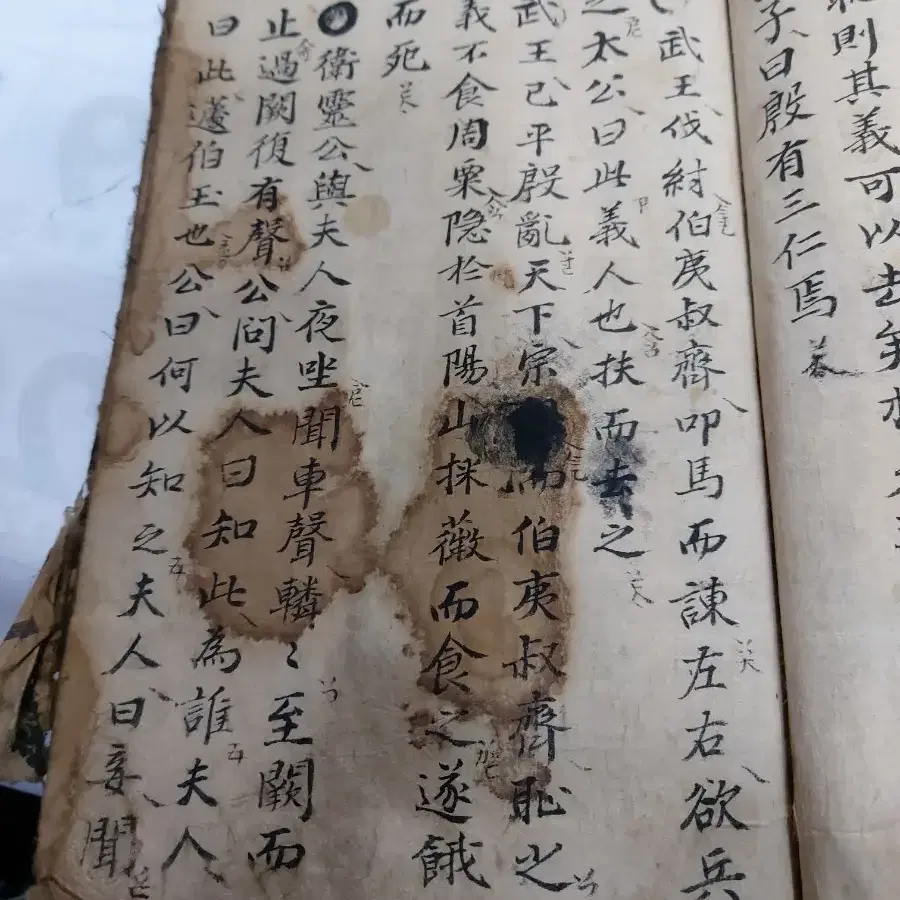 則其義可以去矣
子曰殷有三仁焉
武王伐紂伯夷叔齊叩馬而諫左右欲兵
之太公曰此義人也扶而去之
武王已平殷亂天下宗而伯夷叔齊恥之
義不食周粟隐於首陽山採薇而食之遂餓
而死
衛靈公與夫人夜坐聞車聲轔〻至闕而
止過闕復有聲公問夫人曰知此為誰夫人
曰此蘧伯玉也公曰何以知之夫人曰妾聞